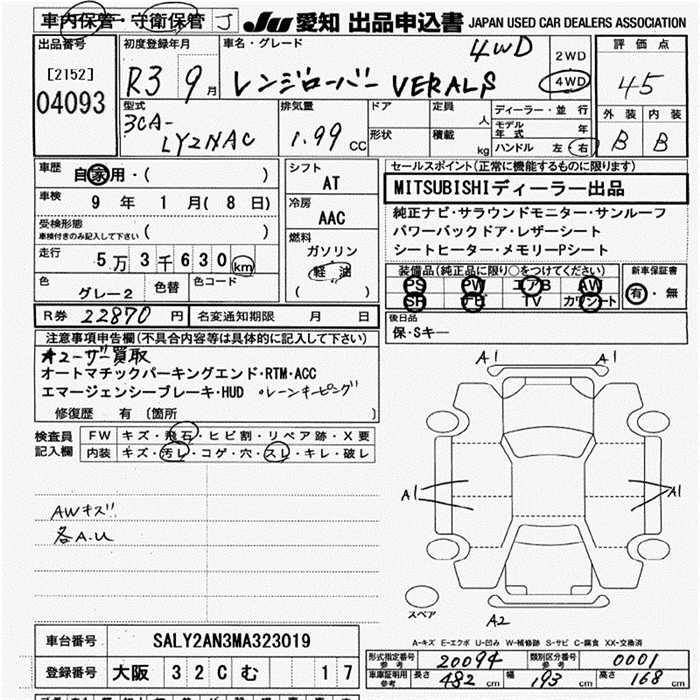 車内保管・守衛保管 J JU 愛知 出品申込書 JAPAN USED CAR DEALERS ASSOCIATION
出品番号 初度登録年月 車名・グレード 4WD 2WD 評価点
[2152] R3 9月 レンジローバー VERALS 4WD 45
04093
型式 排気量 ドア 定員 人 ディーラー・並行 外装 内装
3CA- LY2NAC 1.99 CC 形状 積載 kg モデル年式 年 B B
ハンドル 左 右
車歴 自家用・( ) シフト AT セールスポイント(正常に機能するものに限ります)
車検 9年 1月(8日) 冷房 AAC MITSUBISHIディーラー出品
受検形態 ( ) 純正ナビ・サラウンドモニター・サンルーフ
車検付きのみ記入して下さい 燃料 パワーバックドア・レザーシート
走行 5万3千630km ガソリン シートヒーター・メモリーPシート
色 グレー2 色替 色コード 軽油 ( )
装備品(純正品に限り○をつけてください) 新車保証書
PS PW エアB AW 有・無
SR ナビ TV カワシート
R券 22870円 名変通知期限 月 日 後日品
保・Sキー
注意事項申告欄(不具合内容等は具体的に記入して下さい)
★ユーザー買取
オートマチックパーキングエンド・RTM・ACC
エマージェンシーブレーキ・HUD ・レーンキーピング
修復歴 有 〔箇所 〕
検査員記入欄 FW キズ・飛石・ヒビ割・リペア跡・X要
内装 キズ・汚レ・コゲ・穴・スレ・キレ・破レ
A1 A1
A1 A1
AWキズ!!
各A.U
スペア A2
A-キズ E-エクボ U-凹み W-補修跡 S-サビ C-腐食 XX-交換済
車台番号 SALY2AN3MA323019
登録番号 大阪 32C む 17
形式指定番号 参考 20094 類別区分番号 参考 0001
車庫証明用 参考 長さ 482cm 幅 193cm 高さ 168cm